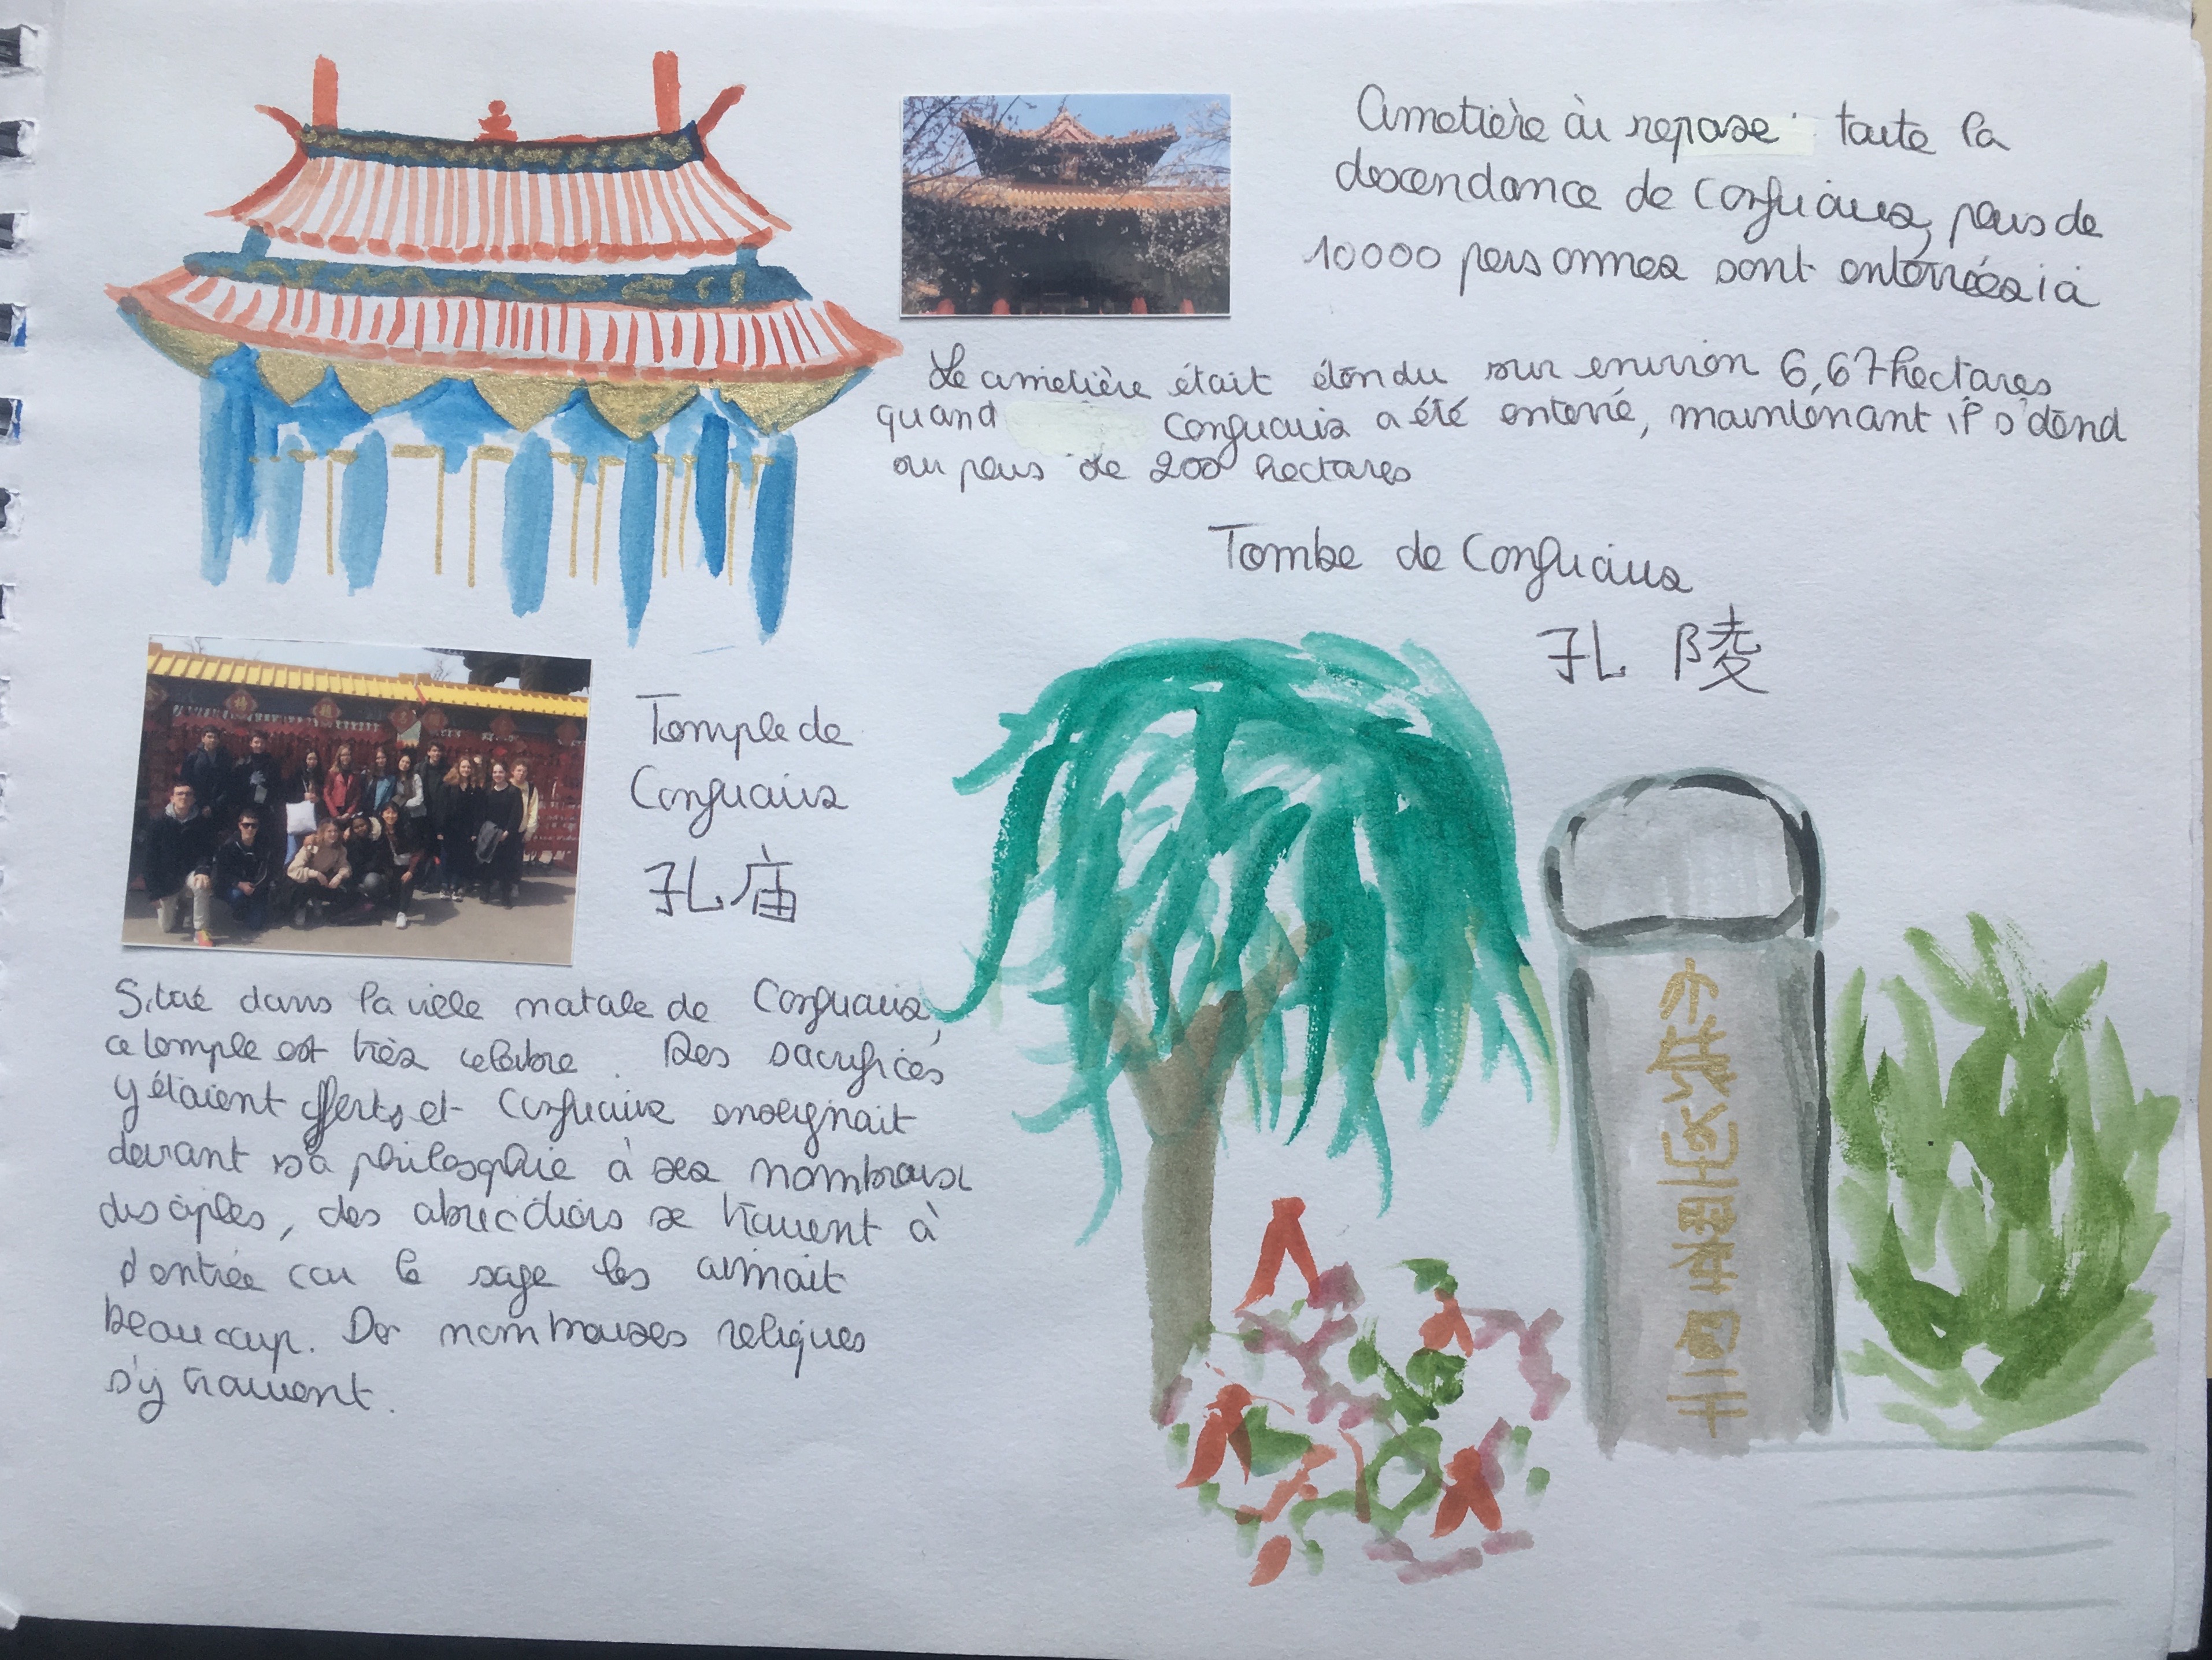 Cimetière où repose toute la
descendance de Confucius, plus de
10000 personnes sont enterrées ici
Le cimetière était étendu sur environ 6,67 hectares
quand Confucius a été enterré, maintenant il s'étend
sur plus de 200 hectares
Tombe de Confucius
孔 陵
Temple de
Confucius
孔庙
Situé dans la ville natale de Confucius,
ce temple est très celebre. Des sacrifices
y étaient offerts et Confucius enseignait
devant sa philosophie à ses nombreux
disciples, des abricotiers se trouvent à
l'entrée car le sage les aimait
beaucoup. De nombreuses reliques
s'y trouvent.